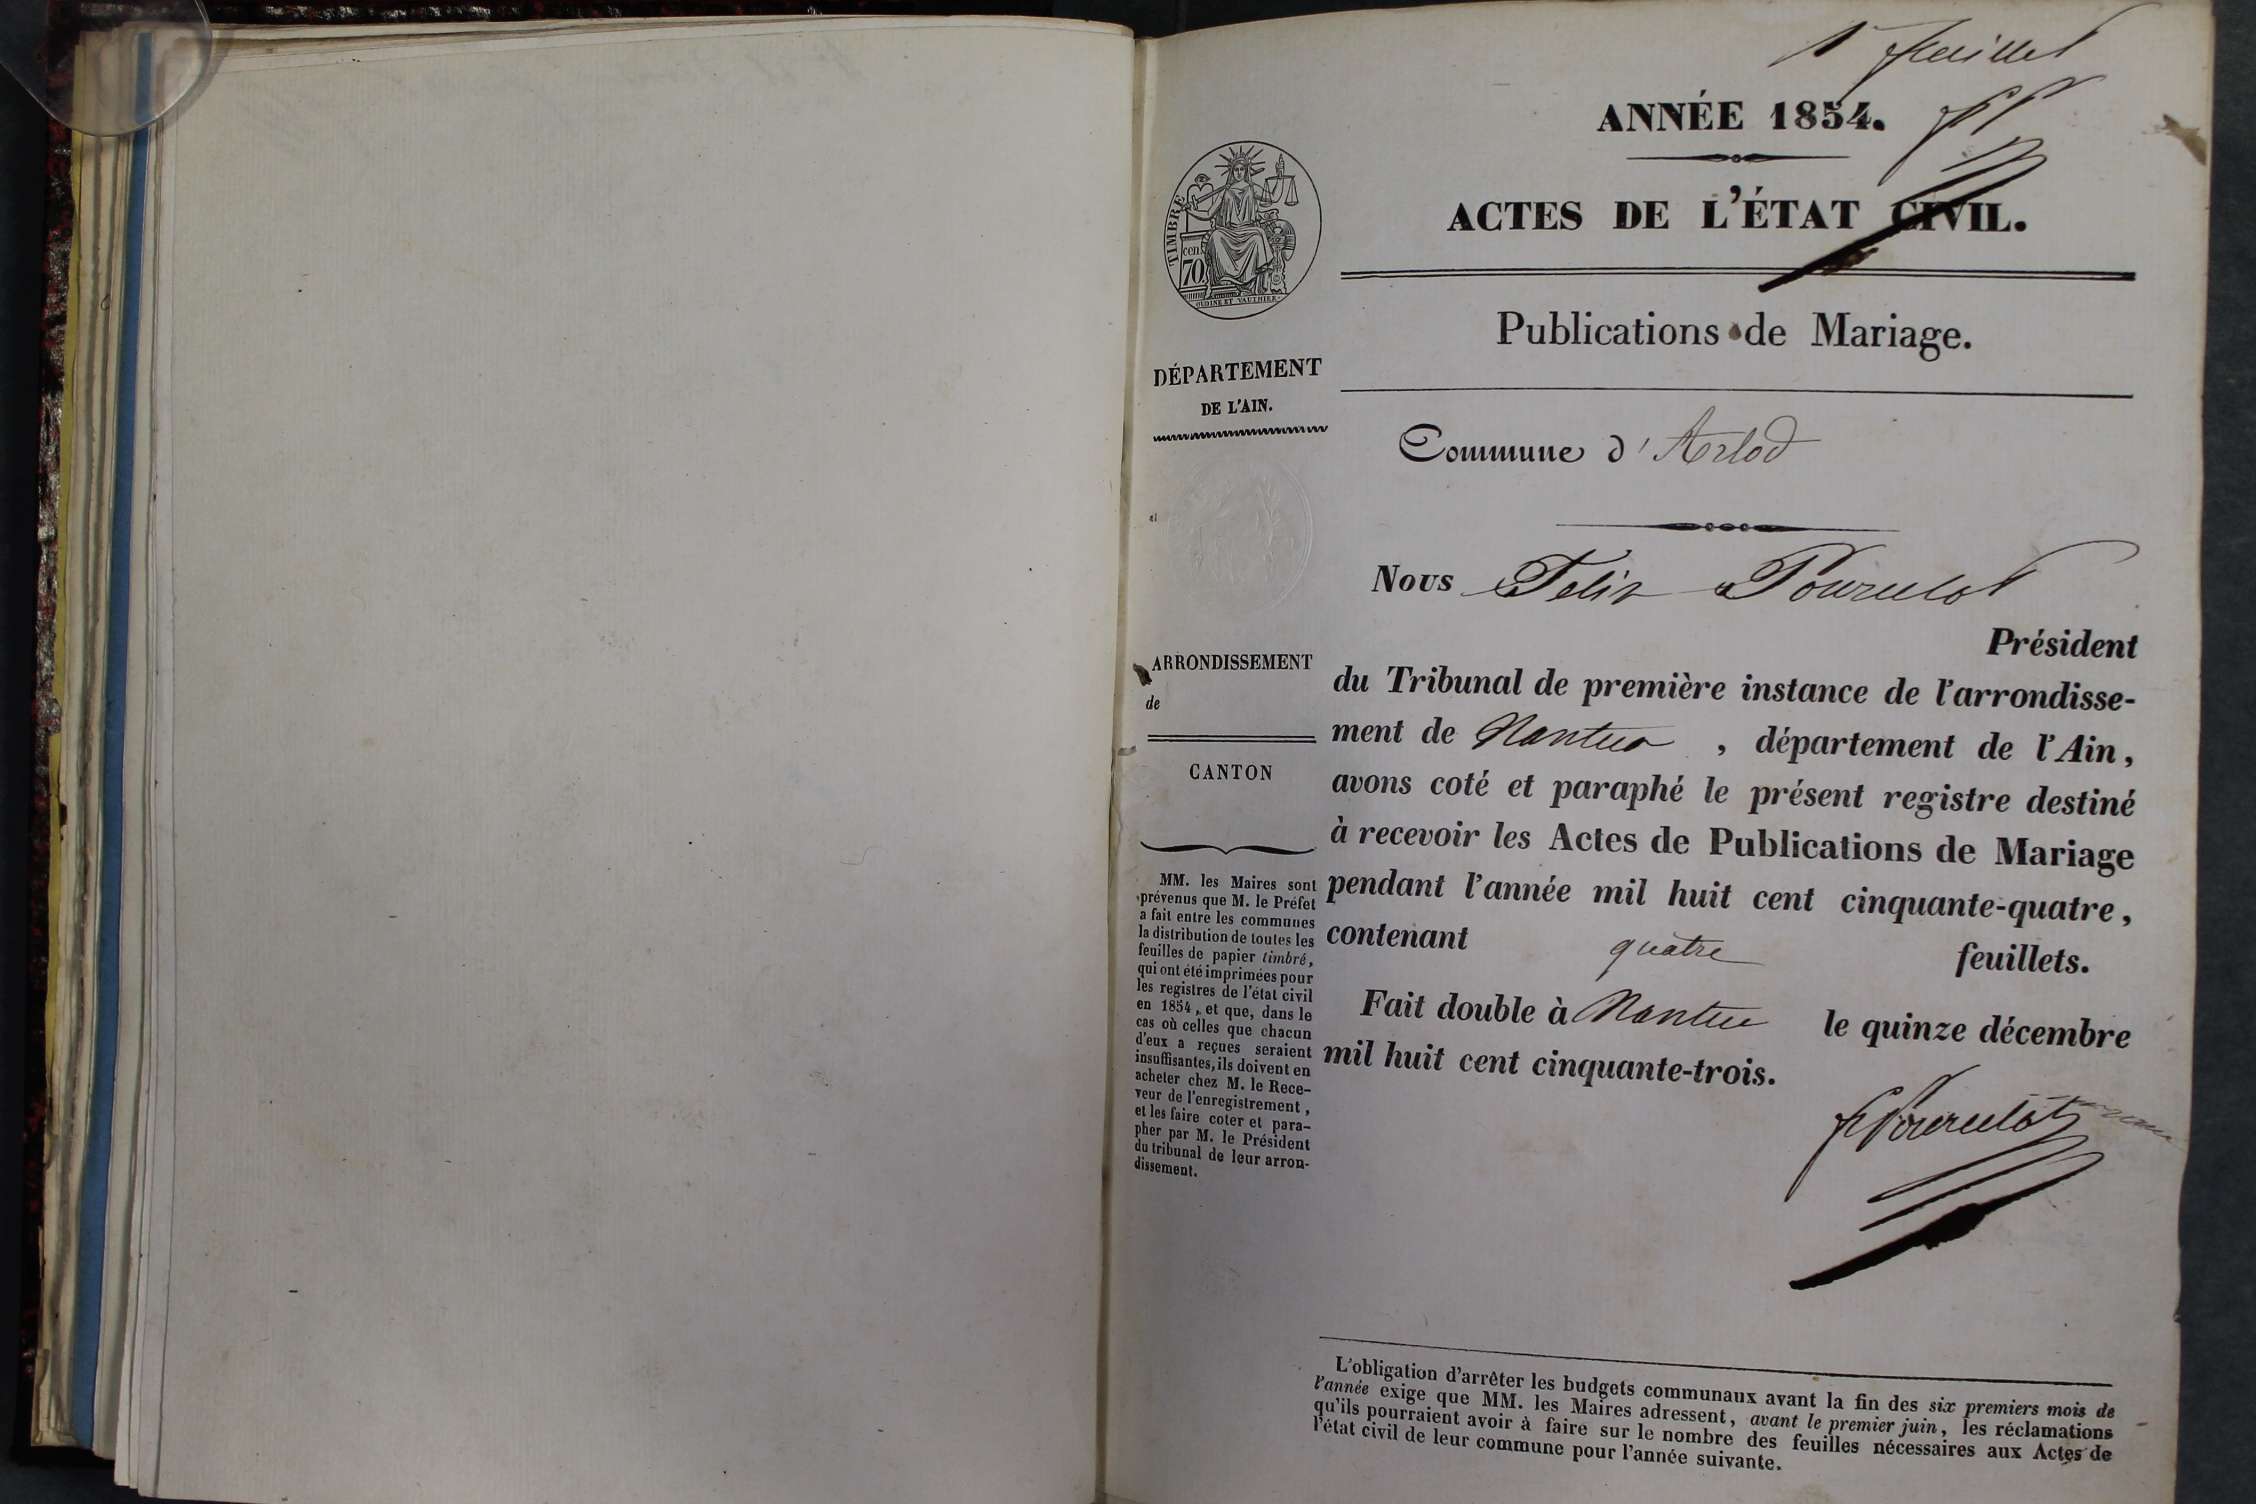 1r feuillet
ANNÉE 1854.
ACTES DE L'ÉTAT CIVIL.
Publications de Mariage.
Commune d'Arlod
TIMBRE
70 cen.
OUDINE ET VAUTHIER
DÉPARTEMENT
DE L'AIN.
ARRONDISSEMENT
de
CANTON
MM. les Maires sont
prévenus que M. le Préfet
a fait entre les communes
la distribution de toutes les
feuilles de papier timbré,
qui ont été imprimées pour
les registres de l'état civil
en 1854, et que, dans le
cas où celles que chacun
d'eux a reçues seraient
insuffisantes, ils doivent en
acheter chez M. le Rece-
veur de l'enregistrement,
et les faire coter et para-
pher par M. le Président
du tribunal de leur arron-
dissement.
Nous Felix Pourcelot
Président
du Tribunal de première instance de l'arrondisse-
ment de Nantua, département de l'Ain,
avons coté et paraphé le présent registre destiné
à recevoir les Actes de Publications de Mariage
pendant l'année mil huit cent cinquante-quatre,
contenant quatre feuillets.
Fait double à Nantua le quinze décembre
mil huit cent cinquante-trois.
F Pourcelot
L'obligation d'arrêter les budgets communaux avant la fin des six premiers mois de
l'année exige que MM. les Maires adressent, avant le premier juin, les réclamations
qu'ils pourraient avoir à faire sur le nombre des feuilles nécessaires aux Actes de
l'état civil de leur commune pour l'année suivante.